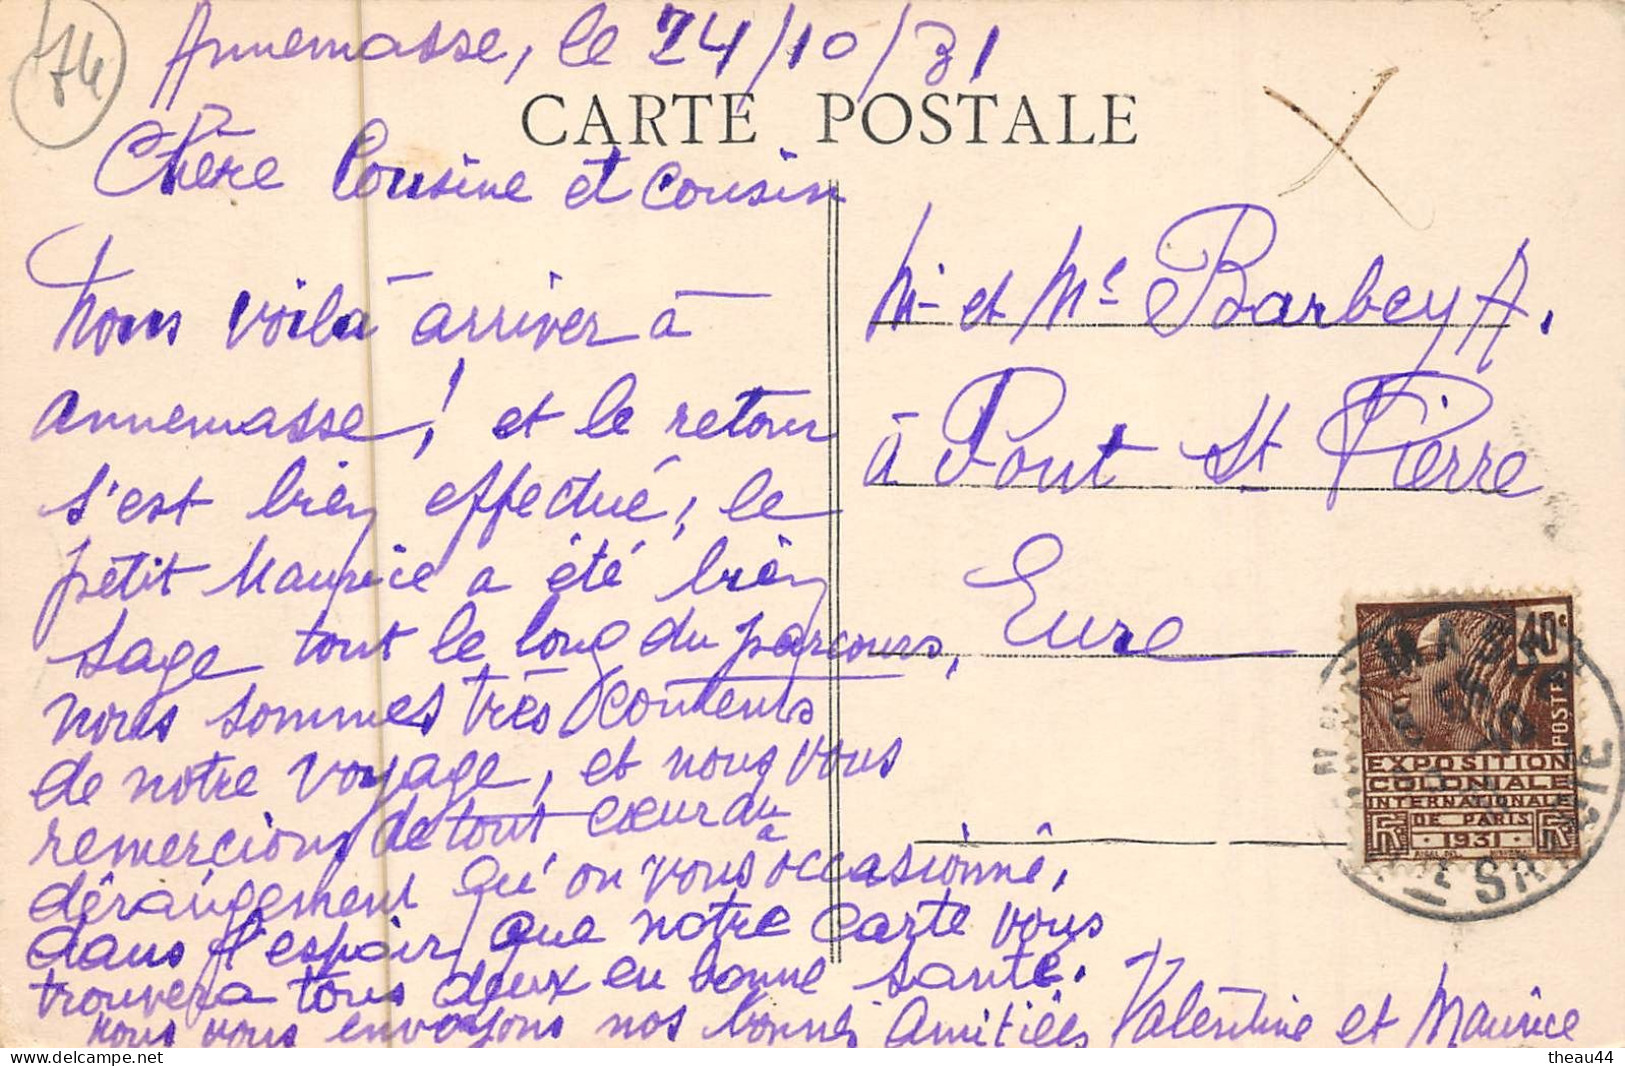 74
Annemasse, le 24/10/31
CARTE POSTALE
Chère Cousine et Cousin
Nous voilà arriver à
annemasse, ! et le retour
s'est bien effectué, le
petit Maurice a été bien
sage tout le long du parcours,
nous sommes très contents
de notre voyage, et nous vous
remercions de tout cœur du
dérangement qu'on vous a occasionné,
dans l'espoir que notre carte vous
trouvera tous deux en bonne santé.
nous vous envoyons nos bonnes Amitiées Valentine et Maurice
Mr et Me Barbey A.
à Pont St Pierre
Eure
40c
POSTES
EXPOSITION
COLONIALE
INTERNATIONALE
DE PARIS
RF 1931 RF
theau44